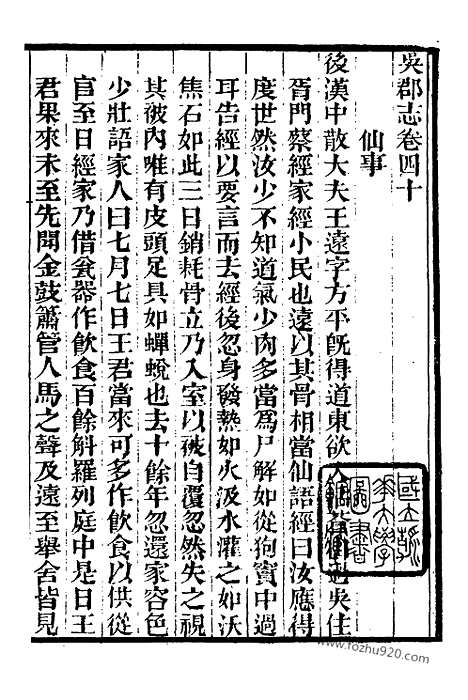 吳郡志卷四十
仙事
後漢中散大夫王遠字方平旣得道東欲入過吳住
胥門蔡經家經小民也遠以其骨相當仙語經曰汝應得
度世然汝少不知道氣少肉多當爲尸解如從狗竇中過
耳告經以要言而去經後忽身發熱如火汲水灌之如沃
焦石如此三日銷耗骨立乃入室以被自覆忽然失之視
其被內唯有皮頭足具如蟬蛻也去十餘年忽還家容色
少壯語家人曰七月七日王君當來可多作飮食以供從
官至日經家乃借瓫器作飮食百餘斛羅列庭中是日王
君果來未至先聞金鼓簫管人馬之聲及遠至舉舍皆見
國立
大學
圖書
www.fozhu920.com